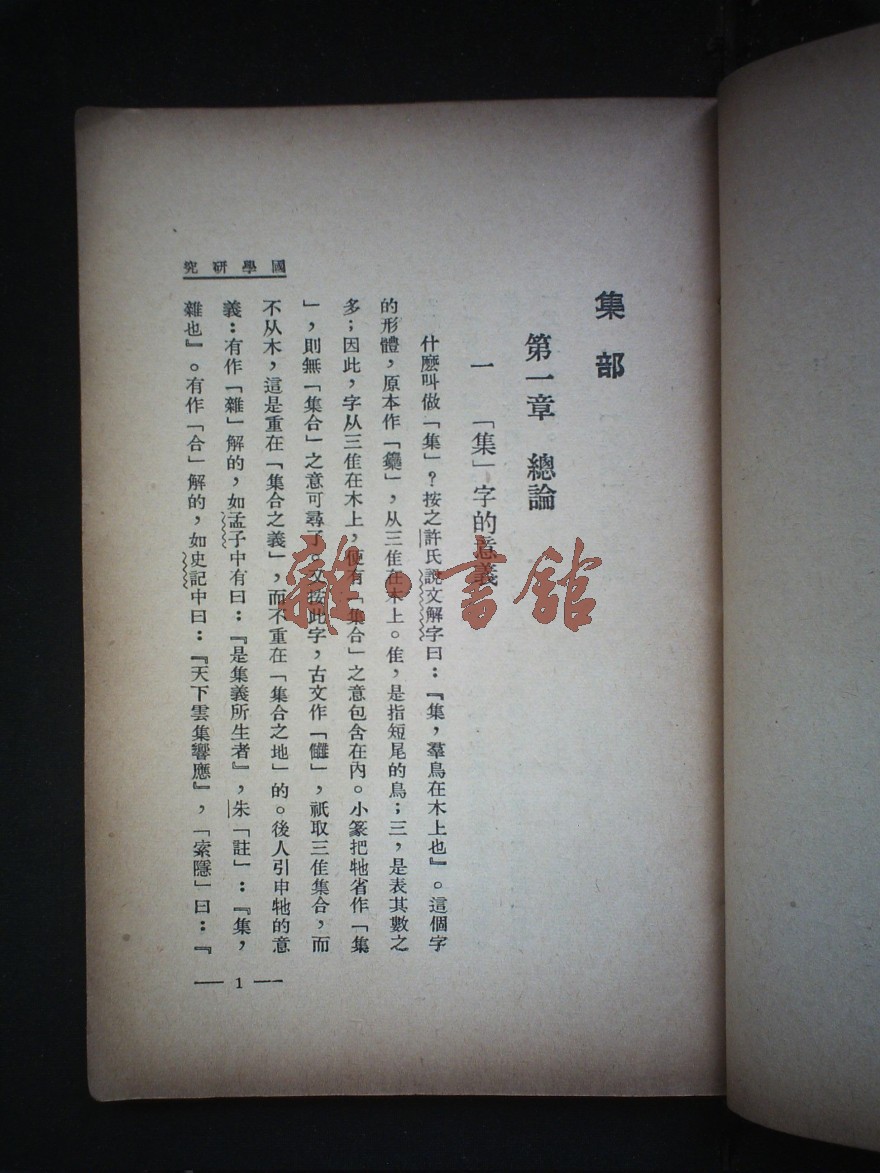 集部
第一章　總論
一　「集」字的意義
什麼叫做「集」？按之許氏說文解字曰：『集，羣鳥在木上也』。這個字
的形體，原本作「雧」，从三隹在木上。隹，是指短尾的鳥；三，是表其數之
多；因此，字从三隹在木上，便有「集合」之意包含在內。小篆把牠省作「集
」，則無「集合」之意可尋了。又按此字，古文作「雦」，祇取三隹集合，而
不从木，這是重在「集合之義」，而不重在「集合之地」的。後人引申牠的意
義：有作「雜」解的，如孟子中有曰：『是集義所生者』，朱「註」：『集，
雜也』。有作「合」解的，如史記中曰：『天下雲集響應』，「索隱」曰：『
國學研究
— 1 —
雜·書館